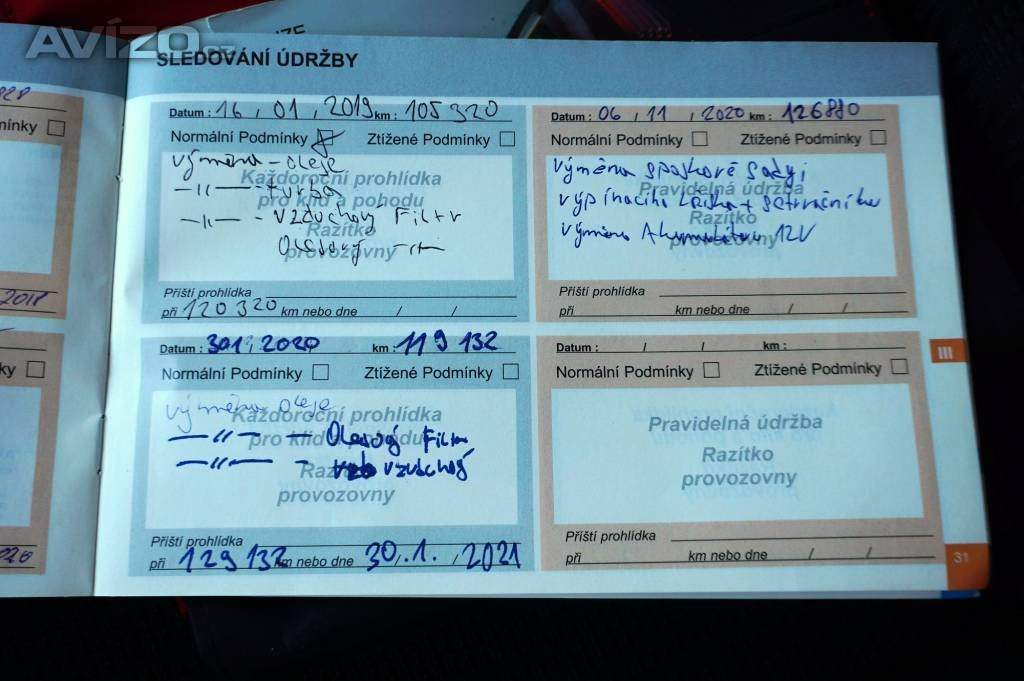 Avízo
SLEDOVÁNÍ ÚDRŽBY
Datum : 16 , 01 , 2019 km : 105 320
Normální Podmínky Ztížené Podmínky
Každoroční prohlídka
pro klid a pohodu
Razítko
provozovny
výměna - oleje
—〃— - turba
—〃— - Vzduchový Filtr
Olejový —〃—
Příští prohlídka
při 120 320 km nebo dne / /
Datum : 06 , 11 , 2020 km : 126880
Normální Podmínky Ztížené Podmínky
Pravidelná údržba
Razítko
provozovny
výměna spojkové sady i
výpínacího + setrvačníku
výměna Akumulátoru 12V
Příští prohlídka
při km nebo dne / /
Datum : 30 1 , 2020 km : 119 132
Normální Podmínky Ztížené Podmínky
Každoroční prohlídka
pro klid a pohodu
Razítko
provozovny
výměna oleje
—〃— — Olejový Filtr
—〃— -
Příští prohlídka
při 129 132 km nebo dne 30. 1. , 2021
Datum : / / km :
Normální Podmínky Ztížené Podmínky
Pravidelná údržba
Razítko
provozovny
Příští prohlídka
při km nebo dne / /
III
31
mínky
2018
ky